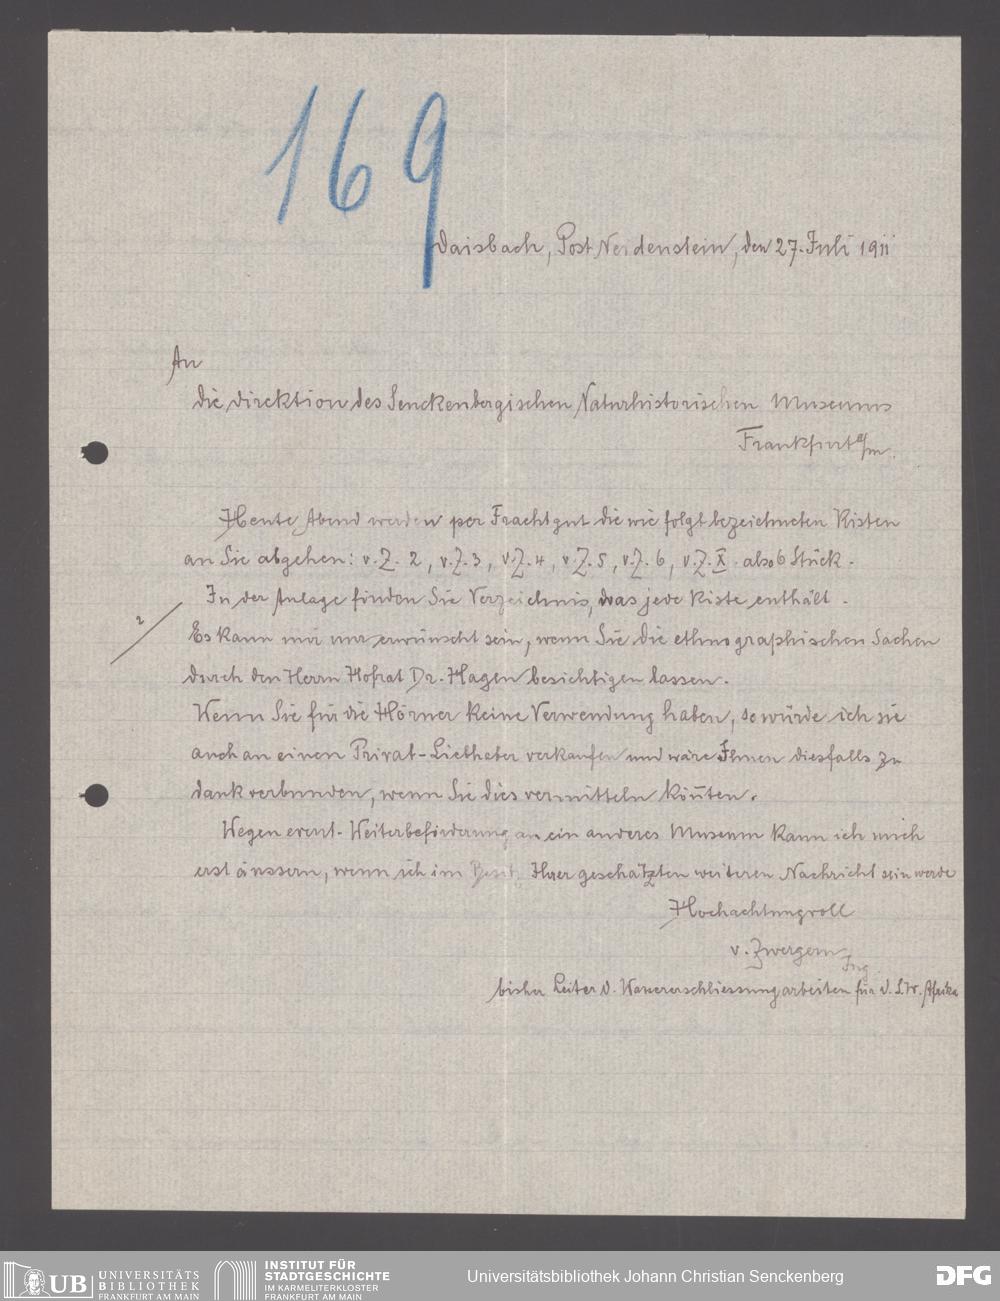 169
Daisbach, Post Neidenstein, den 27. Juli 1911
An
die Direktion des Senckenbergischen Naturhistorischen Museums
Frankfurt a/M.
Heute Abend werden per Frachtgut die wie folgt bezeichneten Kisten
an Sie abgehen: v.Z. 2, v.Z. 3, v.Z. 4, v.Z. 5, v.Z. 6, v.Z. X. also 6 Stück.
In der Anlage finden Sie Verzeichnis, was jede Kiste enthält.
2
Es kann mir nur erwünscht sein, wenn Sie die ethnographischen Sachen
durch den Herrn Hofrat Dr. Hagen besichtigen lassen.
Wenn Sie für die Hörner keine Verwendung haben, so würde ich sie
auch an einen Privat-Liebhaber verkaufen und wäre Ihnen diesfalls zu
Dank verbunden, wenn Sie dies vermitteln könnten.
Wegen event. Weiterbeförderung an ein anderes Museum kann ich mich
erst äussern, wenn ich im Besitz Ihrer geschätzten weiteren Nachricht sein werde
Hochachtungvoll
v. Zwergern
Ing.
bisher Leiter d. Wassererschliessungarbeiten für d. S.W. Afrika
UB UNIVERSITÄTS
BIBLIOTHEK
FRANKFURT AM MAIN
INSTITUT FÜR
STADTGESCHICHTE
IM KARMELITERKLOSTER
FRANKFURT AM MAIN
Universitätsbibliothek Johann Christian Senckenberg
DFG